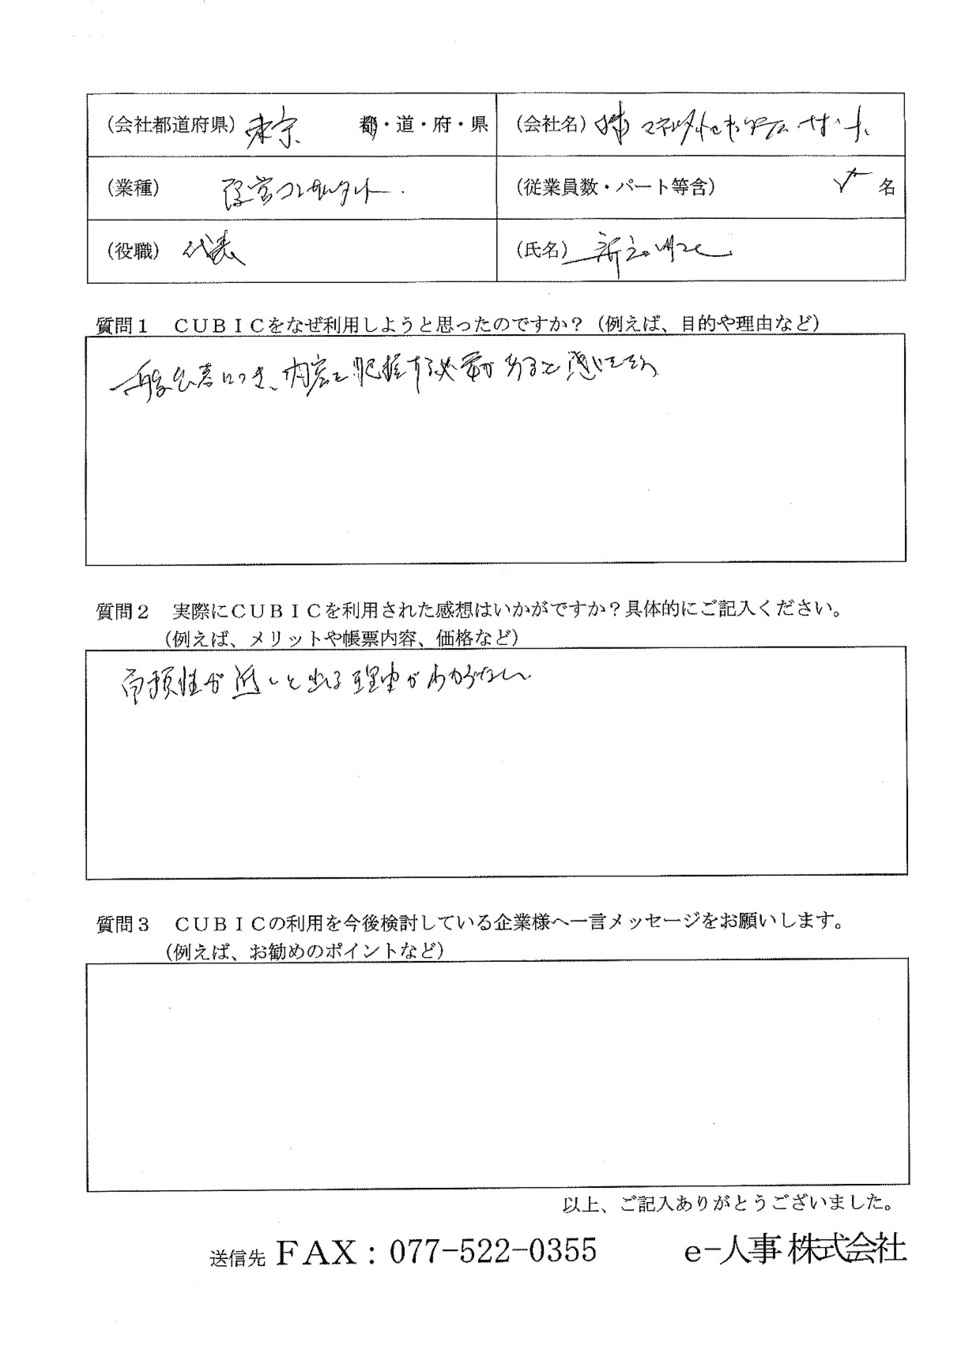 (会社都道府県) 東京 都・道・府・県
(会社名) ㈱ サポート
(業種) 経営コンサルタント.
(従業員数・パート等含) 名
(役職) 代表
(氏名)
質問1 CUBICをなぜ利用しようと思ったのですか？(例えば、目的や理由など)
につき、内容を把握する必要があると感じたから
質問2 実際にCUBICを利用された感想はいかがですか？具体的にご記入ください。
(例えば、メリットや帳票内容、価格など)
信頼性が低いと出る理由がわからない
質問3 CUBICの利用を今後検討している企業様へ一言メッセージをお願いします。
(例えば、お勧めのポイントなど)
以上、ご記入ありがとうございました。
送信先 FAX：077-522-0355 e-人事 株式会社